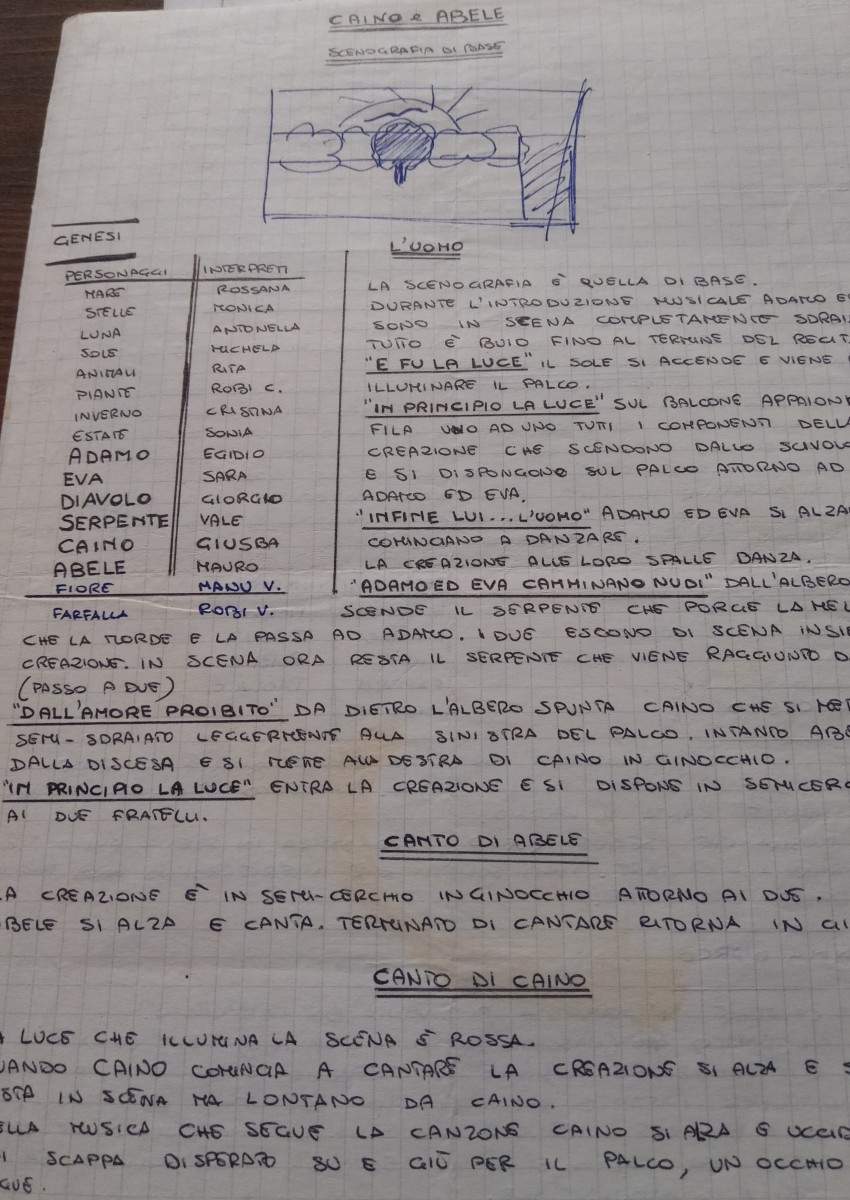 CAINO e ABELE
SCENOGRAFIA DI BASE
GENESI
PERSONAGGI INTERPRETI
MARE ROSSANA
STELLE MONICA
LUNA ANTONELLA
SOLE MICHELA
ANIMALI RITA
PIANTE ROBI C.
INVERNO CRISTINA
ESTATE SONIA
ADAMO EGIDIO
EVA SARA
DIAVOLO GIORGIO
SERPENTE VALE
CAINO GIUSBA
ABELE MAURO
FIORE MANU V.
FARFALLA ROBI V.
L'UOMO
LA SCENOGRAFIA È QUELLA DI BASE.
DURANTE L'INTRODUZIONE MUSICALE ADAMO
SONO IN SCENA COMPLETAMENTE SDRAI
TUTTO È BUIO FINO AL TERMINE DEL RECIT
"E FU LA LUCE" IL SOLE SI ACCENDE E VIENE
ILLUMINARE IL PALCO.
"IN PRINCIPIO LA LUCE" SUL BALCONE APPAION
FILA UNO AD UNO TUTTI I COMPONENTI DELLA
CREAZIONE CHE SCENDONO DALLO SCIVOLO
E SI DISPONGONO SUL PALCO ATTORNO AD
ADAMO ED EVA.
"INFINE LUI...L'UOMO" ADAMO ED EVA SI ALZA
COMINCIANO A DANZARE.
LA CREAZIONE ALLE LORO SPALLE DANZA.
"ADAMO ED EVA CAMMINANO NUDI" DALL'ALBERO
SCENDE IL SERPENTE CHE PORGE LA MEL
CHE LA MORDE E LA PASSA AD ADAMO. I DUE ESCONO DI SCENA INSIE
CREAZIONE. IN SCENA ORA RESTA IL SERPENTE CHE VIENE RAGGIUNTO D
(PASSO A DUE)
"DALL'AMORE PROIBITO" DA DIETRO L'ALBERO SPUNTA CAINO CHE SI MET
SEMI-SDRAIATO LEGGERMENTE ALLA SINISTRA DEL PALCO. INTANTO ABE
DALLA DISCESA E SI METTE ALLA DESTRA DI CAINO IN GINOCCHIO.
"IN PRINCIPIO LA LUCE" ENTRA LA CREAZIONE E SI DISPONE IN SEMICERC
AI DUE FRATELLI.
CANTO DI ABELE
A CREAZIONE È IN SEMI-CERCHIO IN GINOCCHIO ATTORNO AI DUE.
BELE SI ALZA E CANTA. TERMINATO DI CANTARE RITORNA IN GI
CANTO DI CAINO
A LUCE CHE ILLUMINA LA SCENA È ROSSA.
UANDO CAINO COMINCIA A CANTARE LA CREAZIONE SI ALZA E S
STA IN SCENA MA LONTANO DA CAINO.
ELLA MUSICA CHE SEGUE LA CANZONE CAINO SI ALZA E UCCID
I SCAPPA DISPERATO SU E GIÙ PER IL PALCO, UN OCCHIO
GUE.